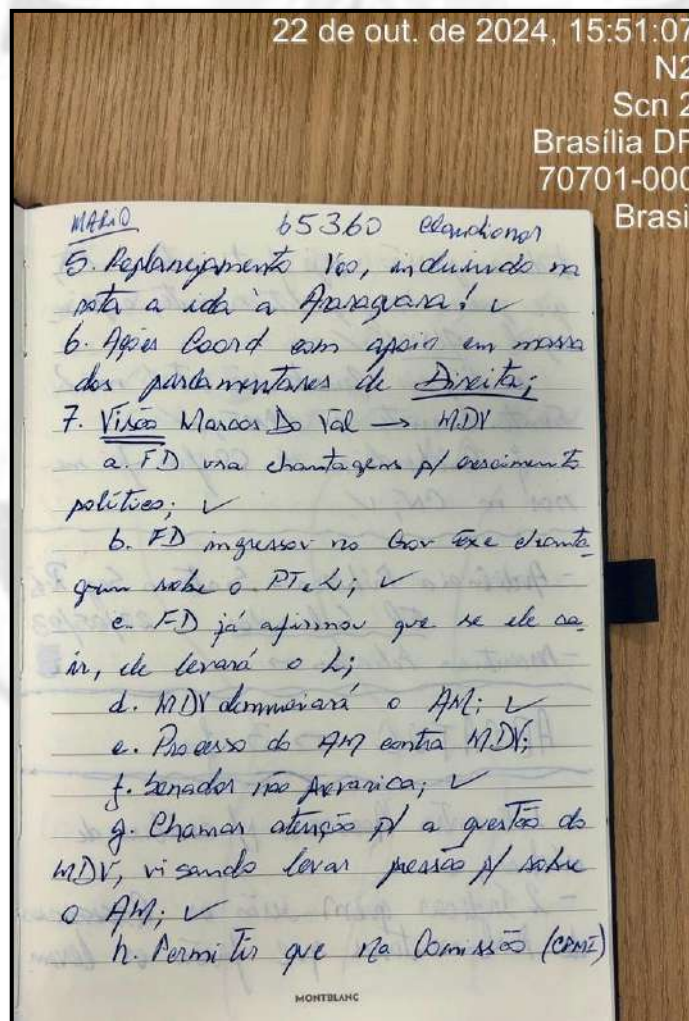 22 de out. de 2024, 15:51:07
N2
Scn 2
Brasília DF
70701-000
Brasil
MARIO 65360 Claudionor
5. Replanejamento Voo, incluindo na
rota a ida à Araraquara! ✓
6. Ações Coord com apoio em massa
dos parlamentares de Direita;
7. Visão Marcos Do Val → MDV
a. FD usa chantagens p/ crescimento
político; ✓
b. FD ingressou no Gov fixe chanta
gem sobre o PT e L; ✓
c. FD já afirmou que se ele ca
ir, ele levará o L;
d. MDV denunciará o AM; ✓
e. Processo do AM contra MDV;
f. Senador não prevarica; ✓
g. Chamar atenção p/ a questão do
MDV, visando levar pressão p/ sobre
o AM; ✓
h. Permitir que na Comissão (CPMI)
MONTBLANC